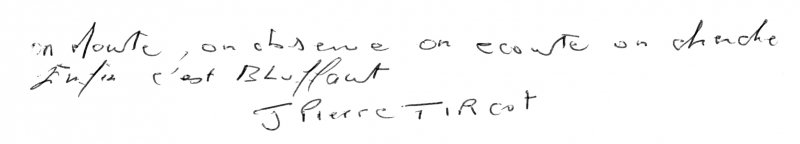 on doute, on observe on ecoute on cherche
Enfin c'est BLuffant
J Pierre TIRCOT